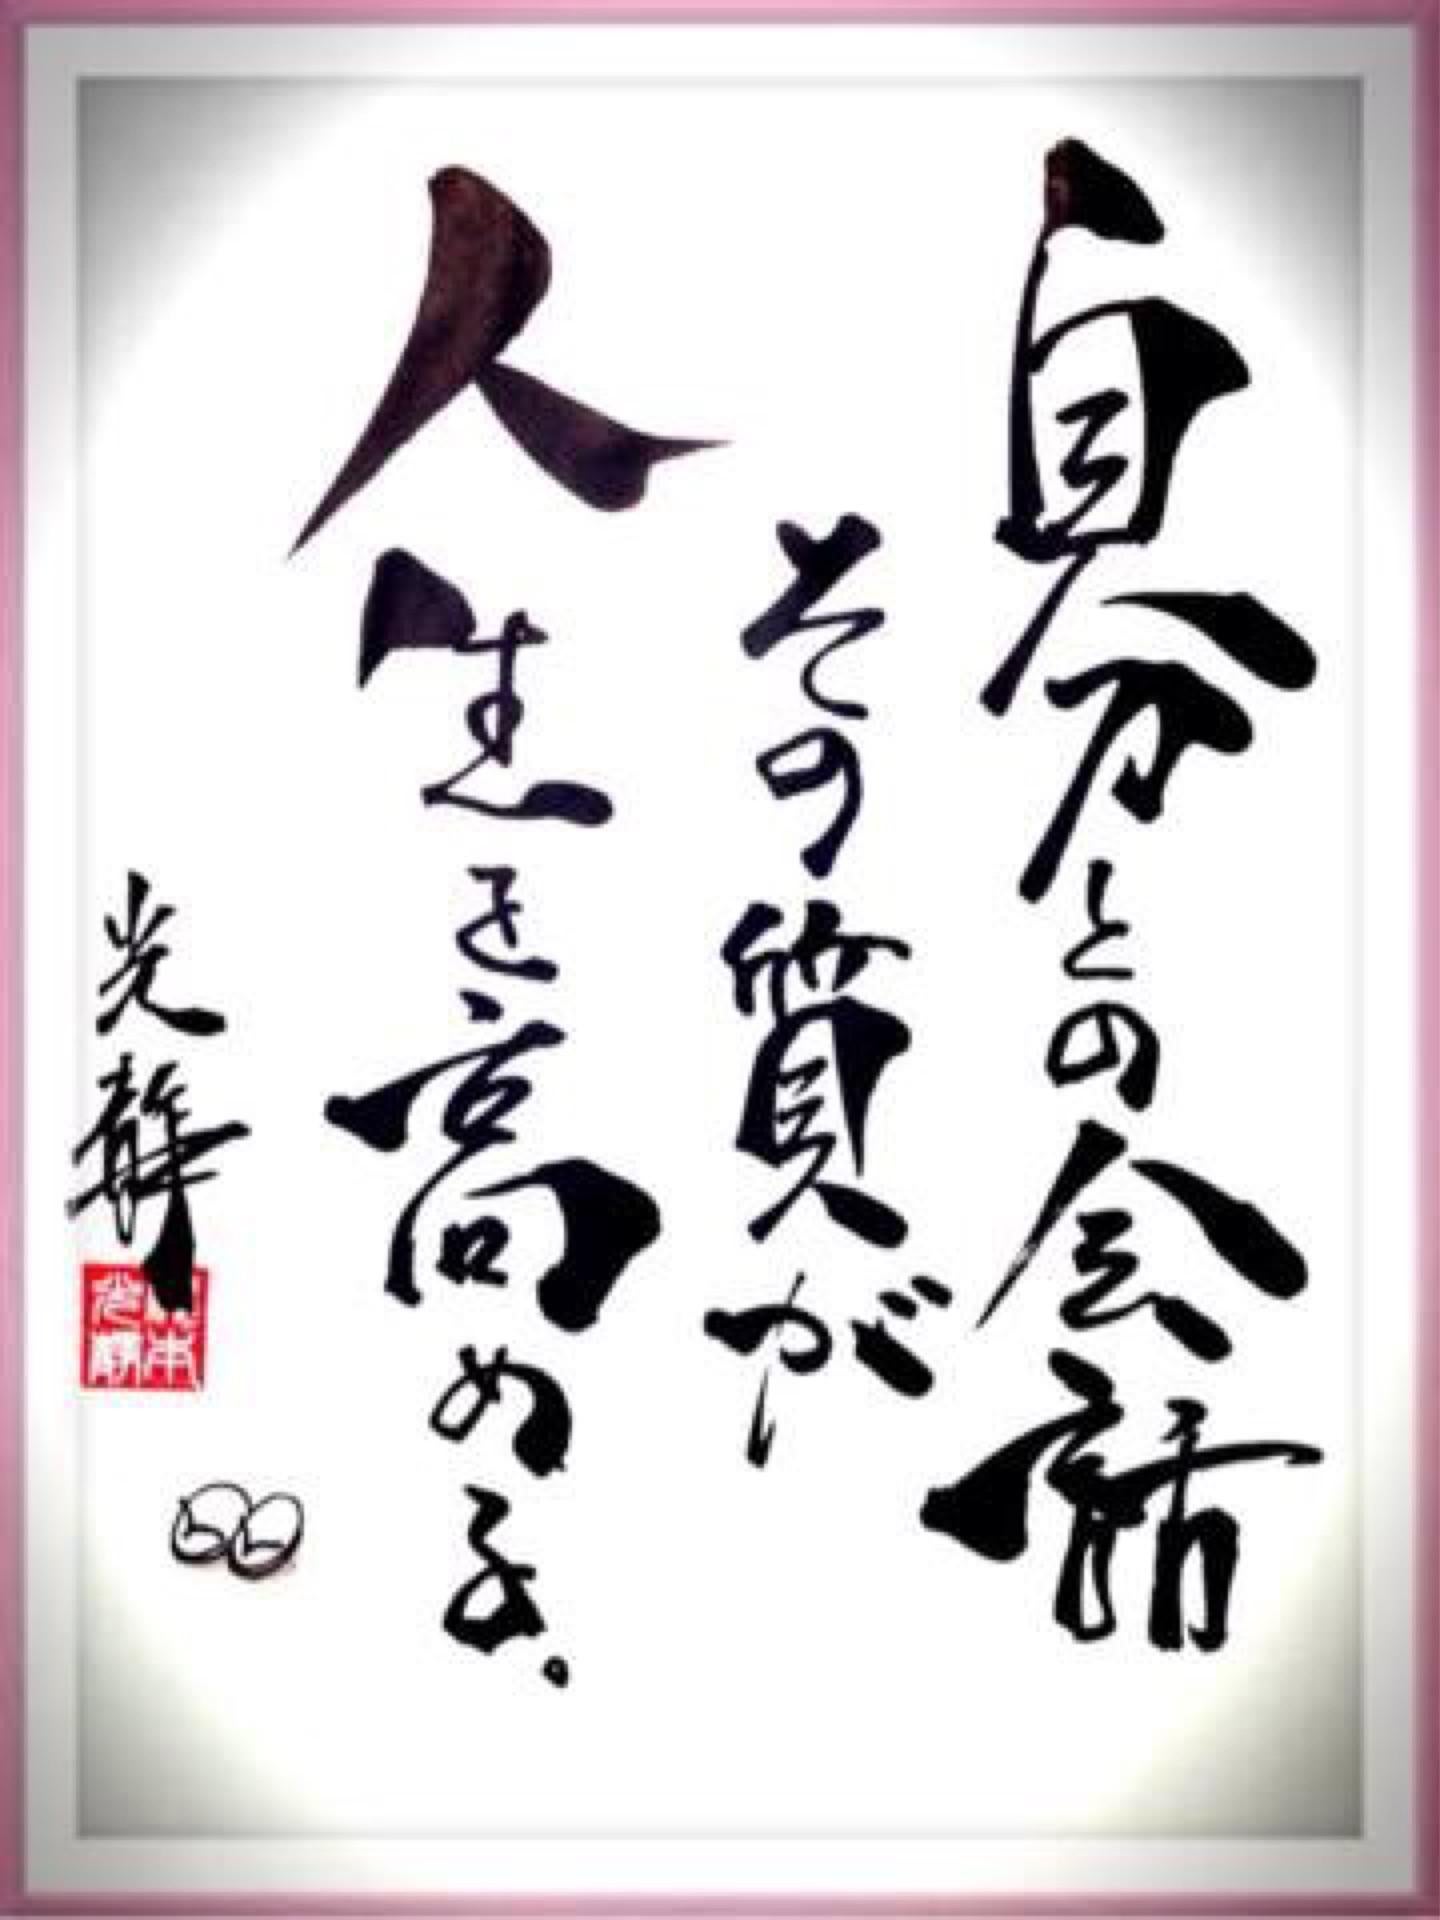 自分との会話
その質が
人生を高める。
光静